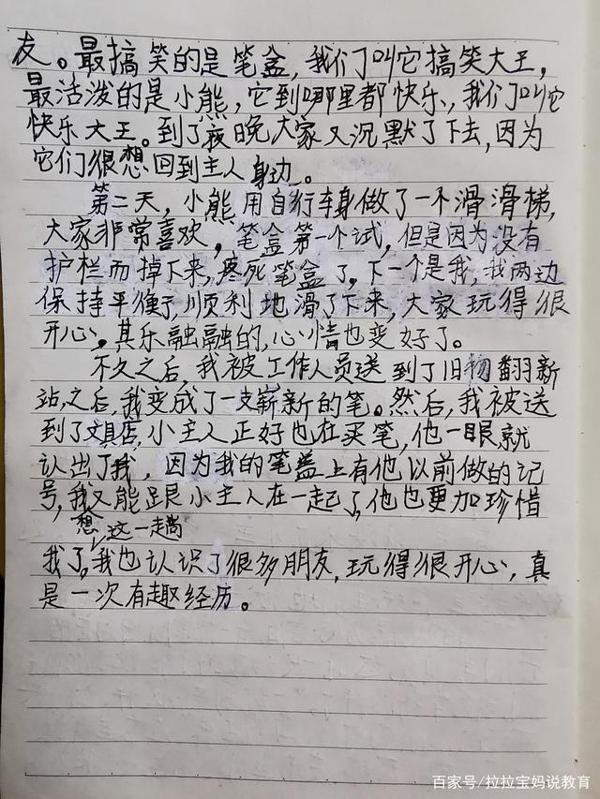 友。最搞笑的是笔盒,我们叫它搞笑大王,
最活泼的是小熊,它到哪里都快乐,我们叫它
快乐大王。到了夜晚大家又沉默了下去,因为
它们很想回到主人身边。
第二天,小熊用自行车身做了一个滑滑梯,
大家非常喜欢,笔盒第一个试,但是因为没有
护栏而掉下来,疼死笔盒了。下一个是我,我两边
保持平衡,顺利地滑了下来,大家玩得很
开心。其乐融融的,心情也变好了。
不久之后,我被工作人员送到了旧物翻新
站,之后,我变成了一支崭新的笔。然后,我被送
到了文具店,小主人正好也在买笔,他一眼就
认出了我,因为我的笔盖上有他以前做的记
号,我又能跟小主人在一起了,他也更加珍惜
想这一趟
我了,我也认识了很多朋友,玩得很开心,真
是一次有趣经历。
百家号/拉拉宝妈说教育